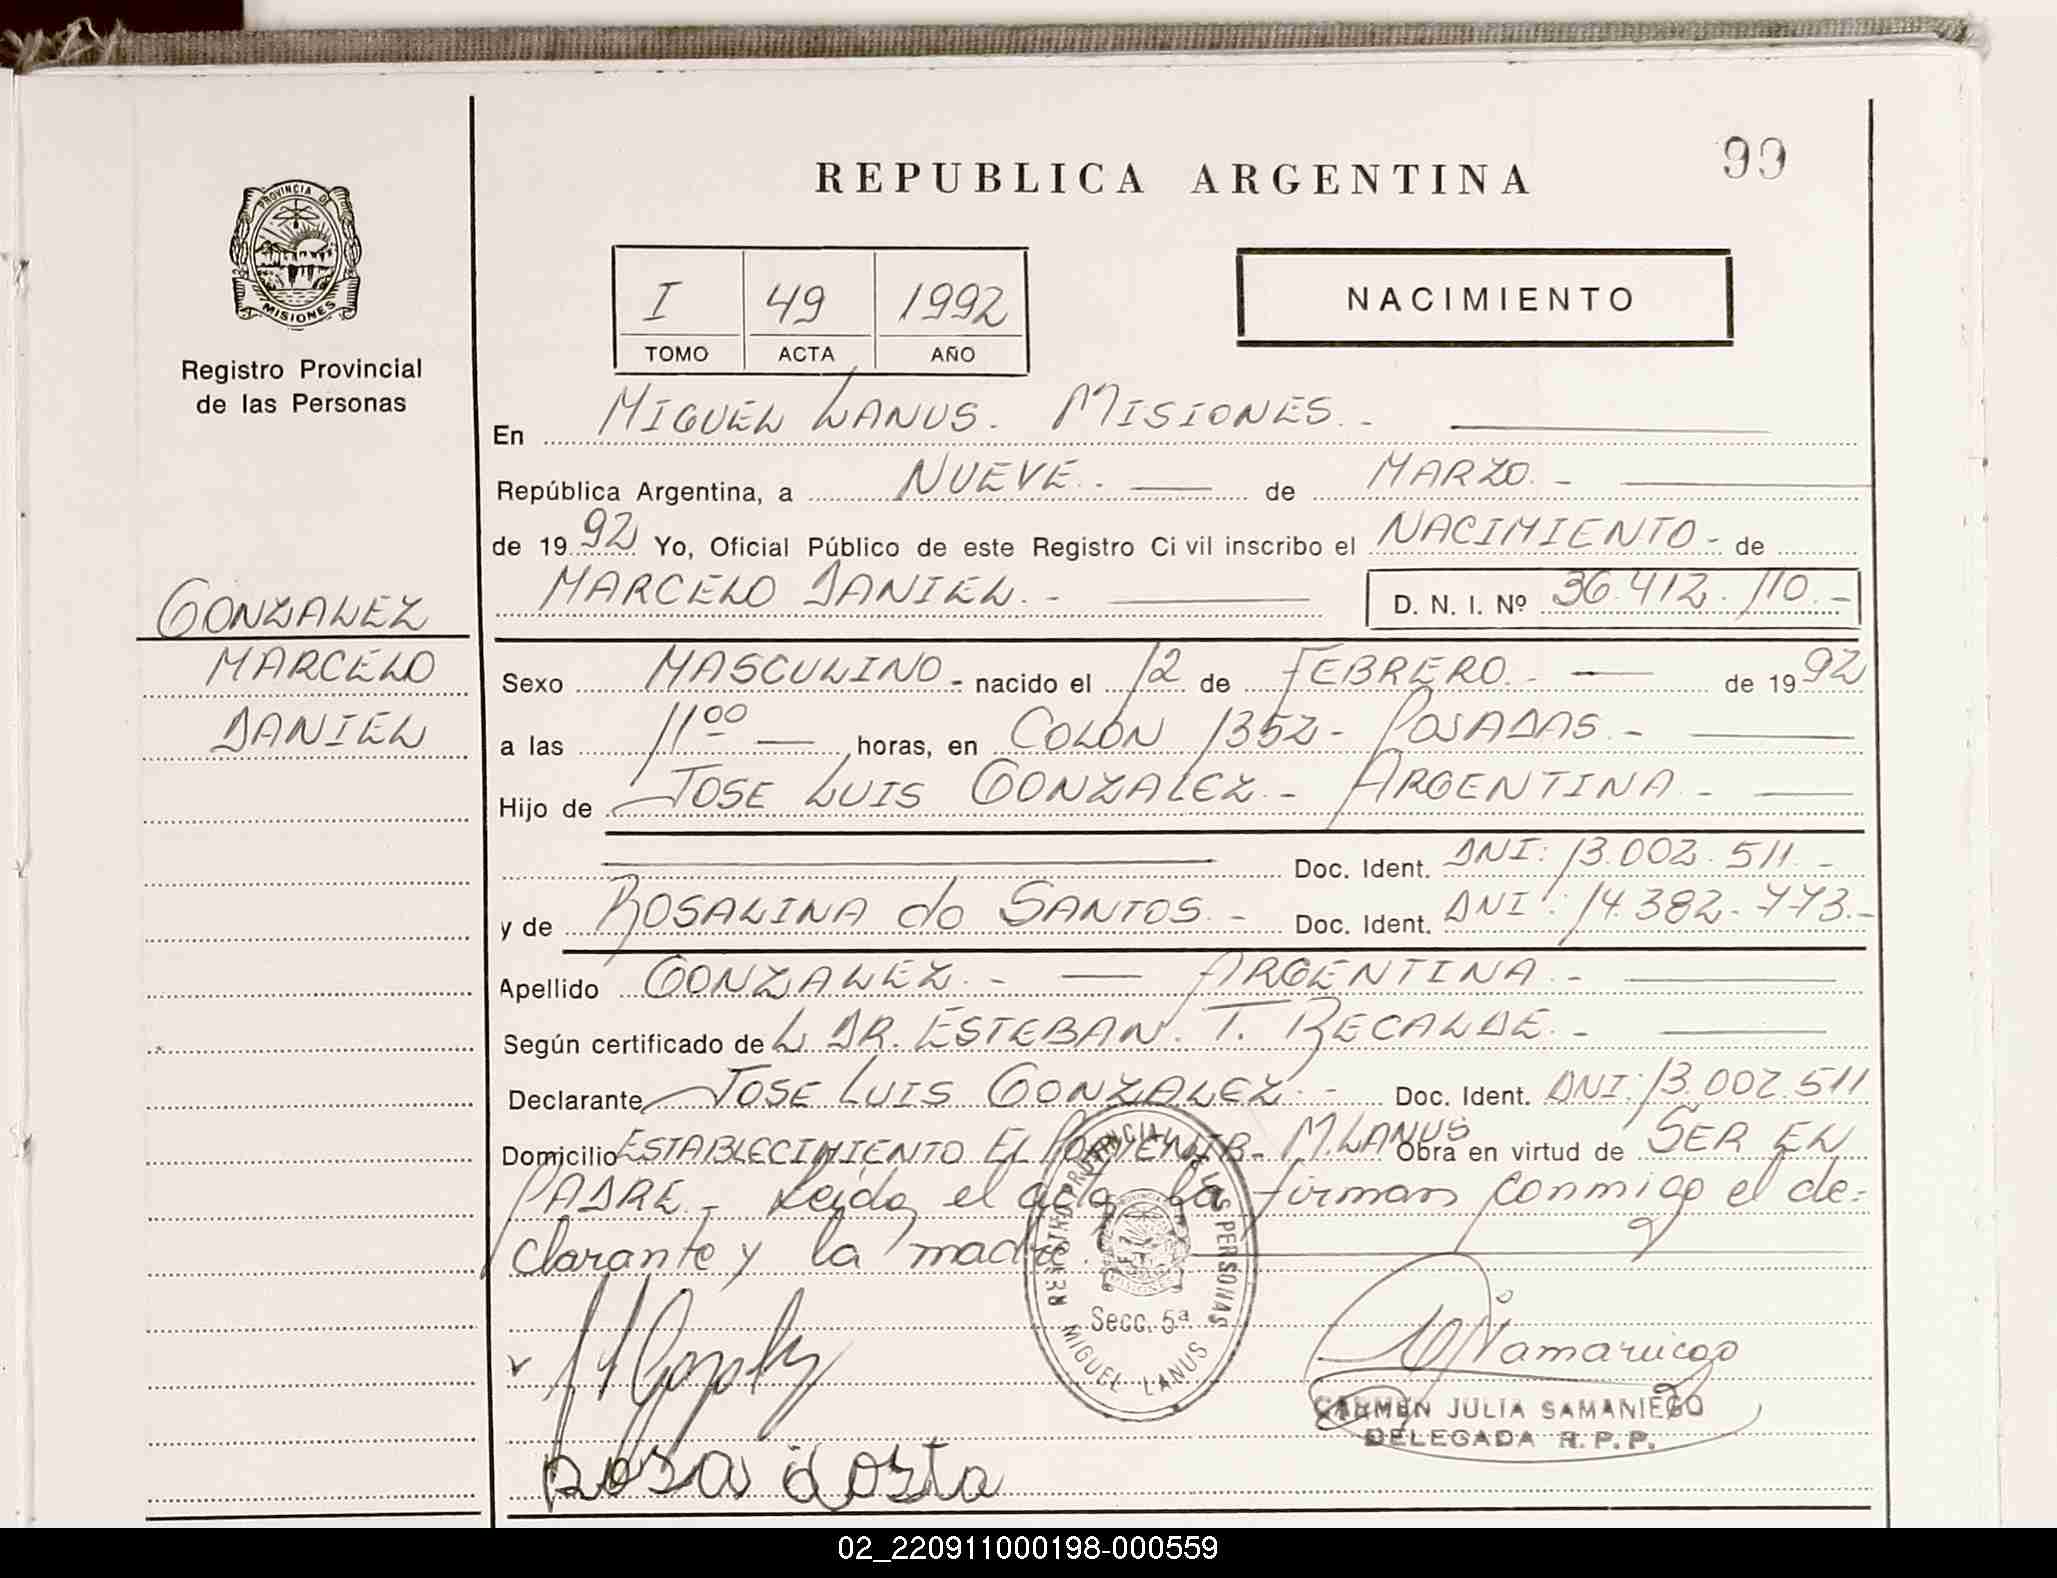 REPUBLICA ARGENTINA
99
PROVINCIA DE
MISIONES
Registro Provincial
de las Personas
I 49 1992
TOMO ACTA AÑO
NACIMIENTO
En MIGUEL LANUS. MISIONES.-
República Argentina, a NUEVE.- de MARZO.-
de 1992 Yo, Oficial Público de este Registro Civil inscribo el NACIMIENTO- de
MARCELO DANIEL.- D. N. I. Nº 36.412.110.-
GONZALEZ
MARCELO
DANIEL
Sexo MASCULINO- nacido el 12 de FEBRERO.- de 1992
a las 11ºº horas, en COLON 1352- POSADAS.-
Hijo de JOSE LUIS GONZALEZ.- ARGENTINA.-
Doc. Ident. DNI: 13.002.511.-
y de ROSALINA do SANTOS.- Doc. Ident. DNI: 14.382.773.-
Apellido GONZALEZ.- ARGENTINA.-
Según certificado de L DR. ESTEBAN. T. RECALDE.-
Declarante JOSE LUIS GONZALEZ.- Doc. Ident. DNI: 13.002.511
Domicilio ESTABLECIMIENTO EL PORVENIR- M. LANUS Obra en virtud de SER EL
PADRE.- Leida el acta la firman conmigo el de=
clarante y la madre.
REGISTRO PROVINCIAL DE LAS PERSONAS
Secc. 5ª
MIGUEL LANUS
CARMEN JULIA SAMANIEGO
DELEGADA R.P.P.
02_220911000198-000559